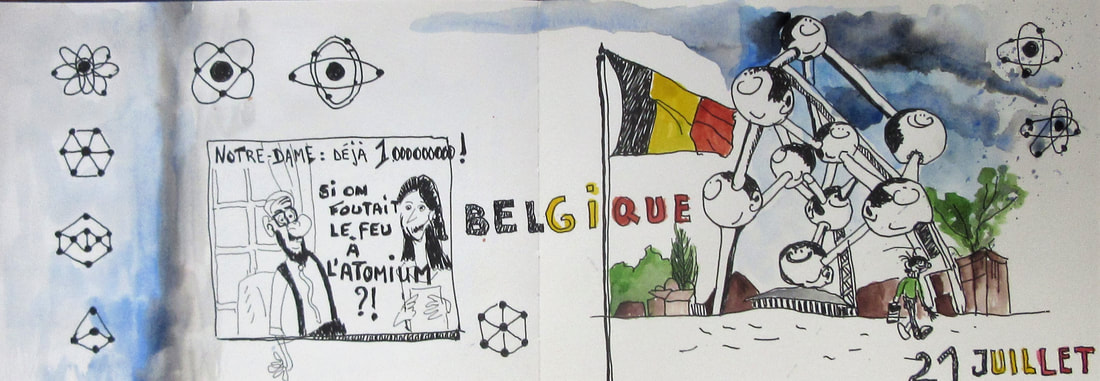 NOTRE-DAME : DÉJÀ 1000000000 !
SI ON
FOUTAIT
LE FEU
À
L'ATOMIUM
?!
BELGIQUE
21 JUILLET